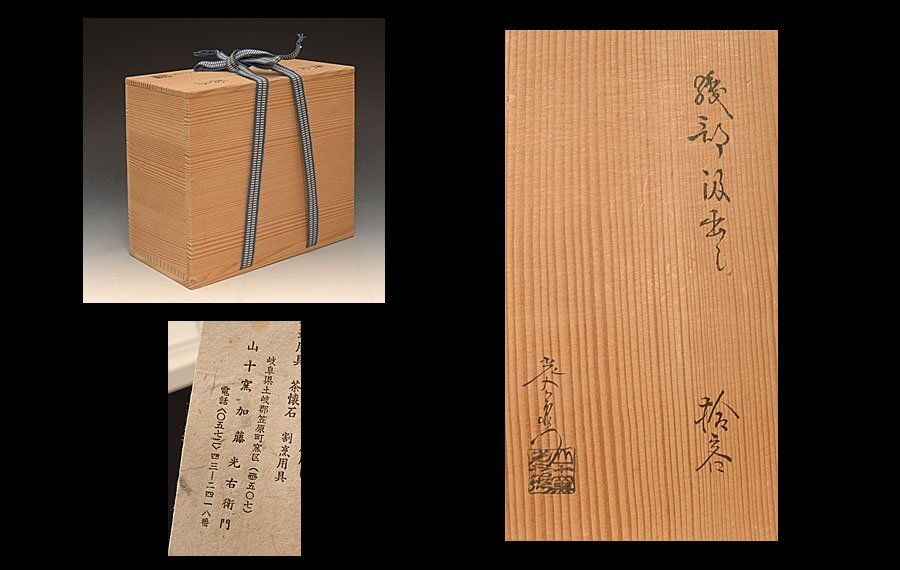 織部汲出し
拾客
光右衛門
茶懐石
割烹用具
岐阜県土岐郡笠原町窯区(〒五〇七)
山十窯 加藤光右衛門
電話〈〇五七二〉四三―二四一八番